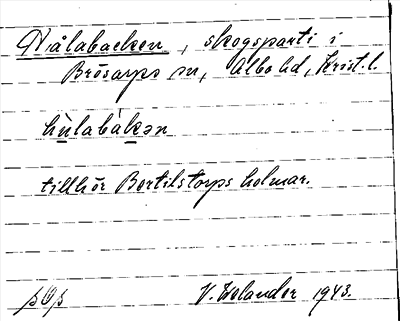 Hjälabacken, skogsparti i
Brösarps sn, Albo hd, Krist. l.
hùlabákən
tillhör Bertilstorps holmar.
pOp V. Helander 1943.